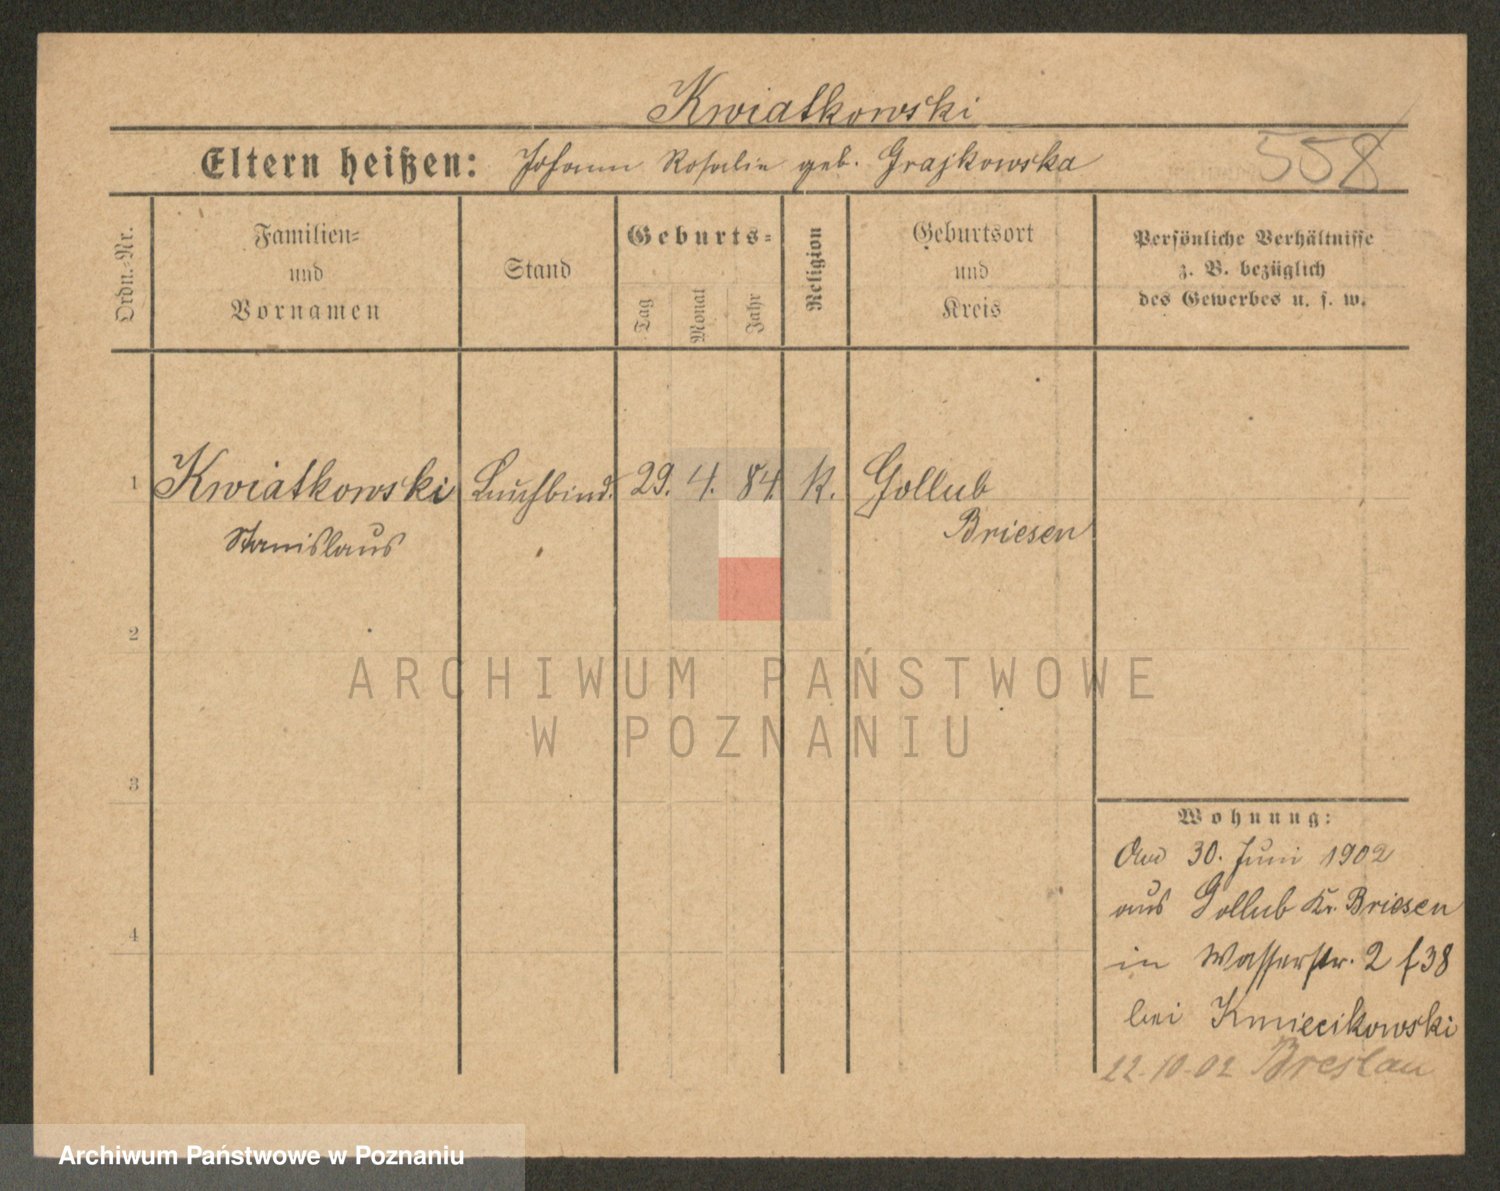 Kwiatkowski
Eltern heißen: Johann Rosalie geb. Grajkowska
558
Ordn.-Nr.
Familien-
und
Vornamen
Stand
Geburts-
Tag
Monat
Jahr
Religion
Geburtsort
und
Kreis
Persönliche Verhältnisse
z. B. bezüglich
des Gewerbes u. s. w.
1 Kwiatkowski Buchbind. 29. 4. 84 K. Gollub
Stanislaus Briesen
2
3
4
Wohnung:
30. Juni 1902
aus Gollub Kr. Briesen
in Wasserstr. 2 f38
bei Kmiecikowski
22.10.02 Breslau
ARCHIWUM PAŃSTWOWE
W POZNANIU
Archiwum Państwowe w Poznaniu